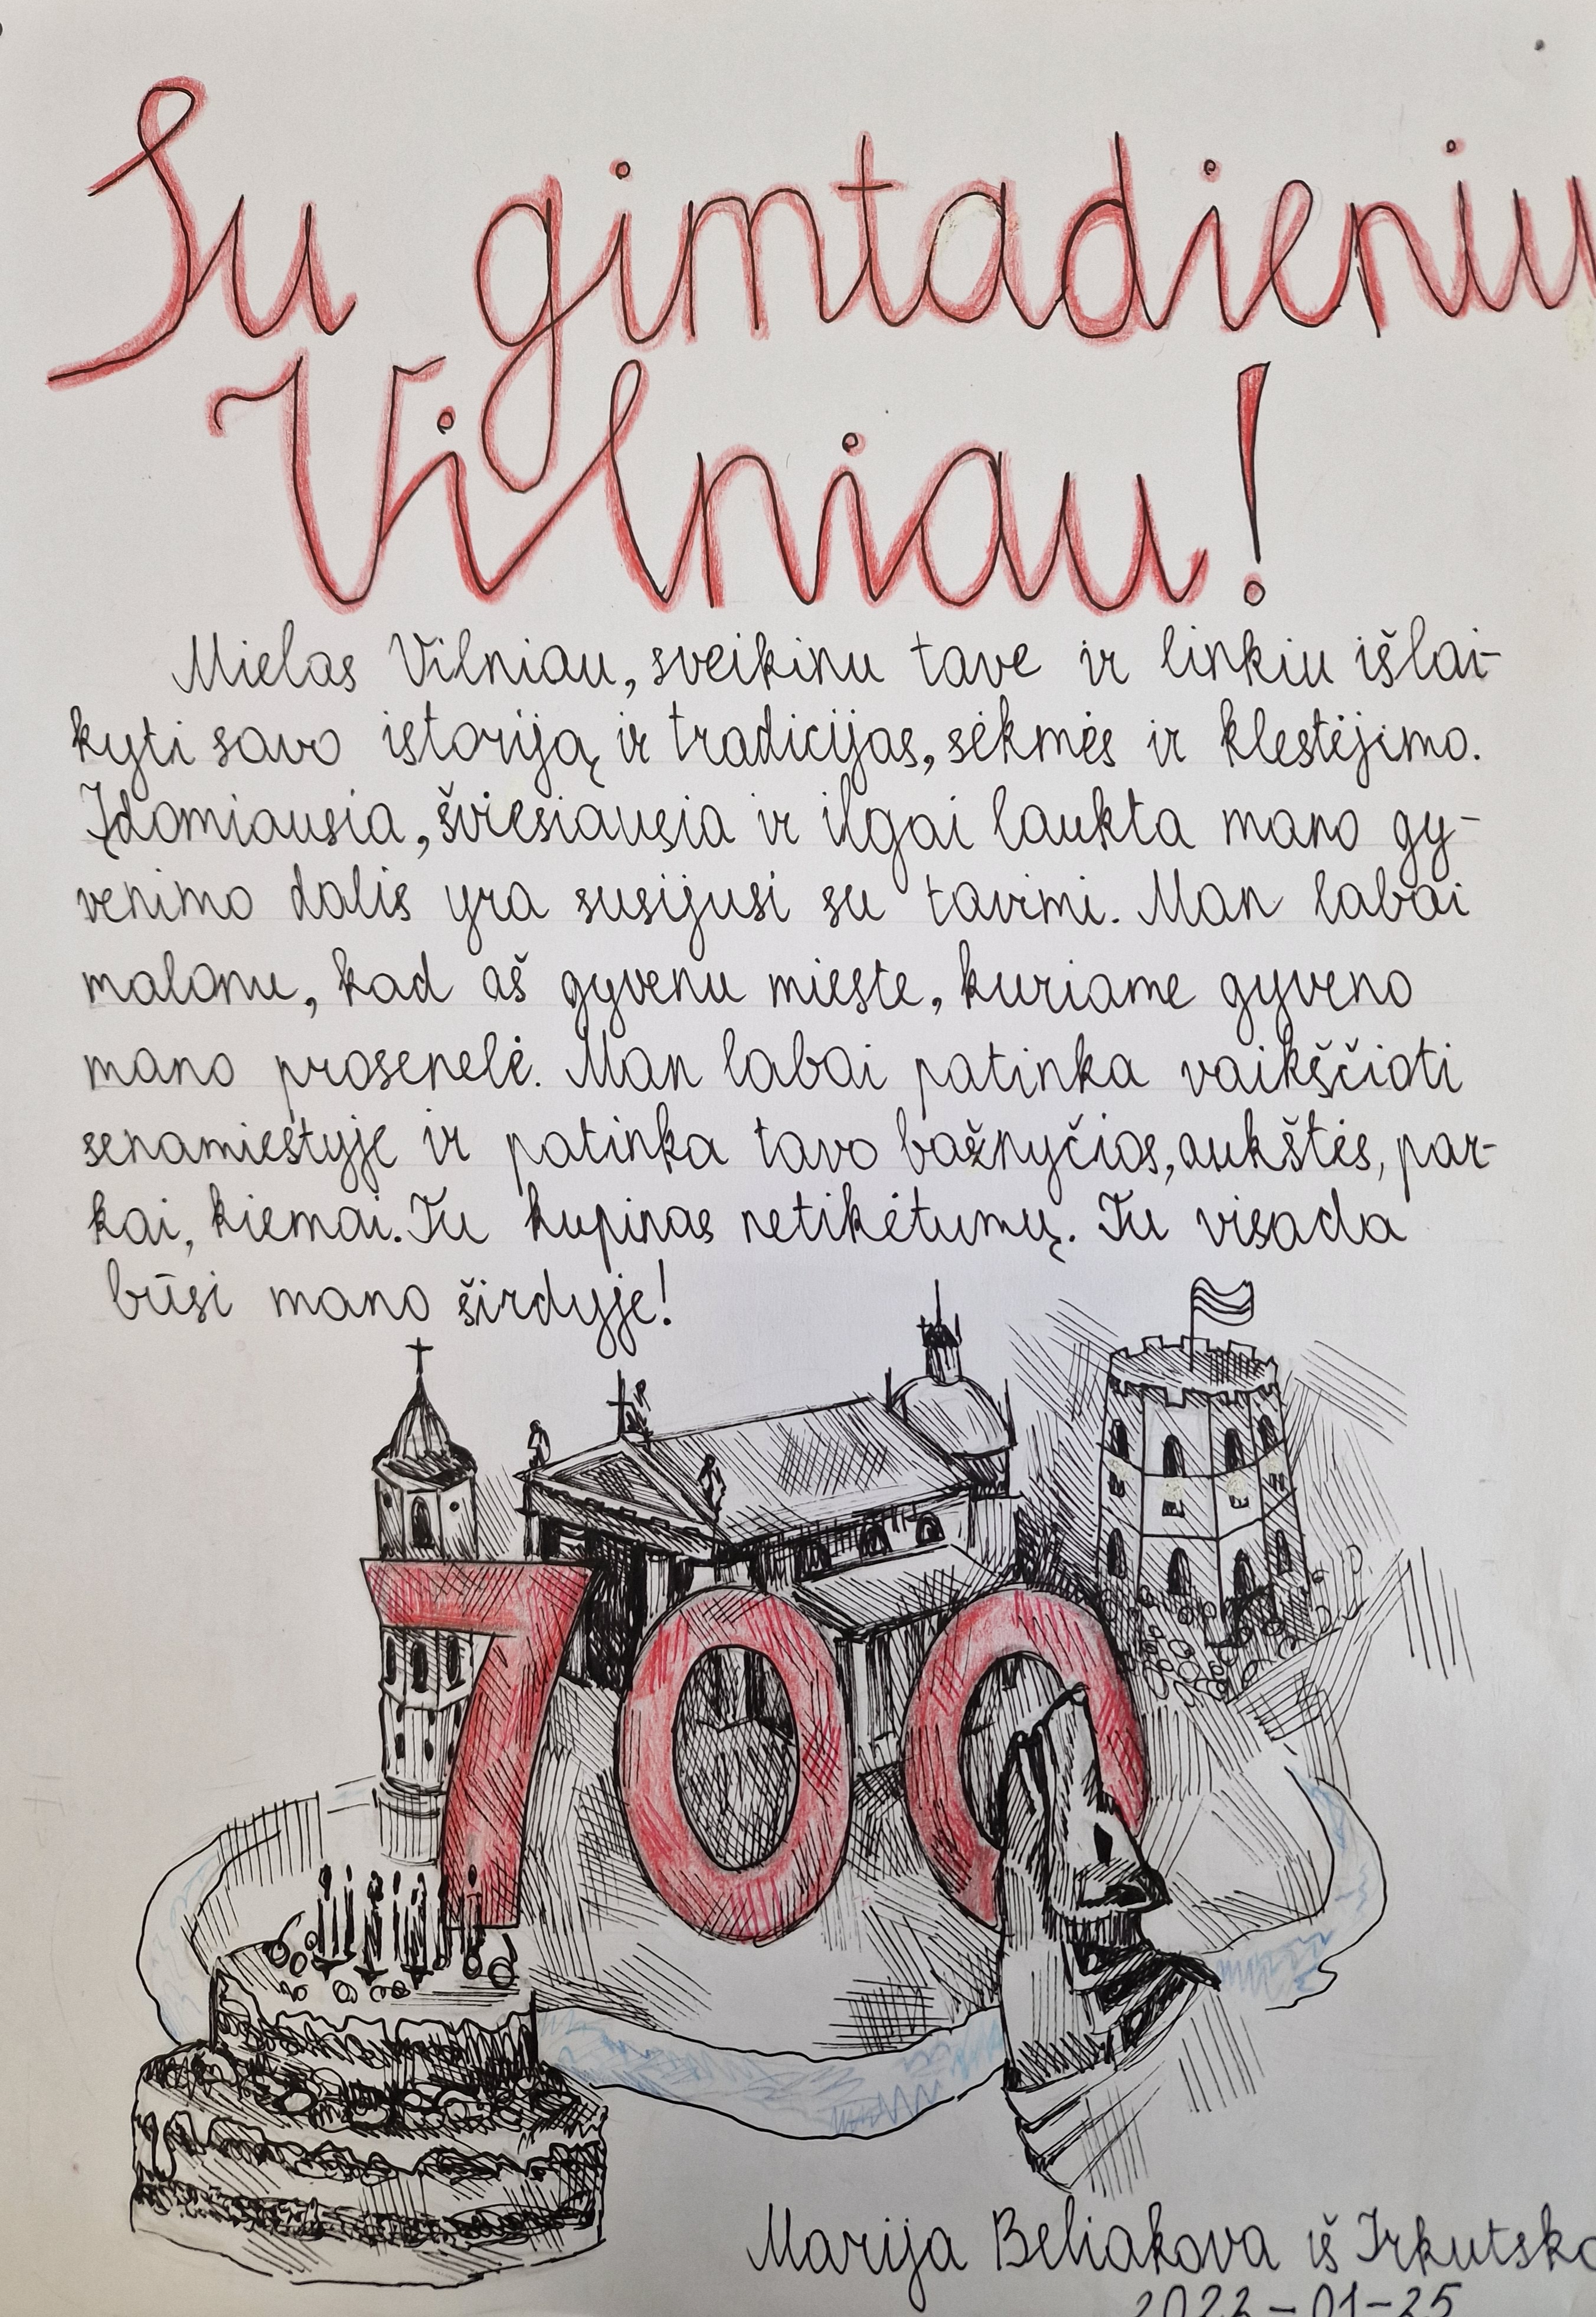 Su gimtadieniu
Vilniau!
Mielas Vilniau, sveikinu tave ir linkiu išlai-
kyti savo istoriją ir tradicijas, sėkmės ir klestėjimo.
Įdomiausia, šviesiausia ir ilgai laukta mano gy-
venimo dalis yra susijusi su tavimi. Man labai
malonu, kad aš gyvenu mieste, kuriame gyveno
mano prosenelė. Man labai patinka vaikščioti
senamiestyje ir patinka tavo bažnyčios, aukštės, par-
kai, kiemai. Tu kupinas netikėtumų. Tu visada
būsi mano širdyje!
700
Marija Beliakova iš Irkutsko